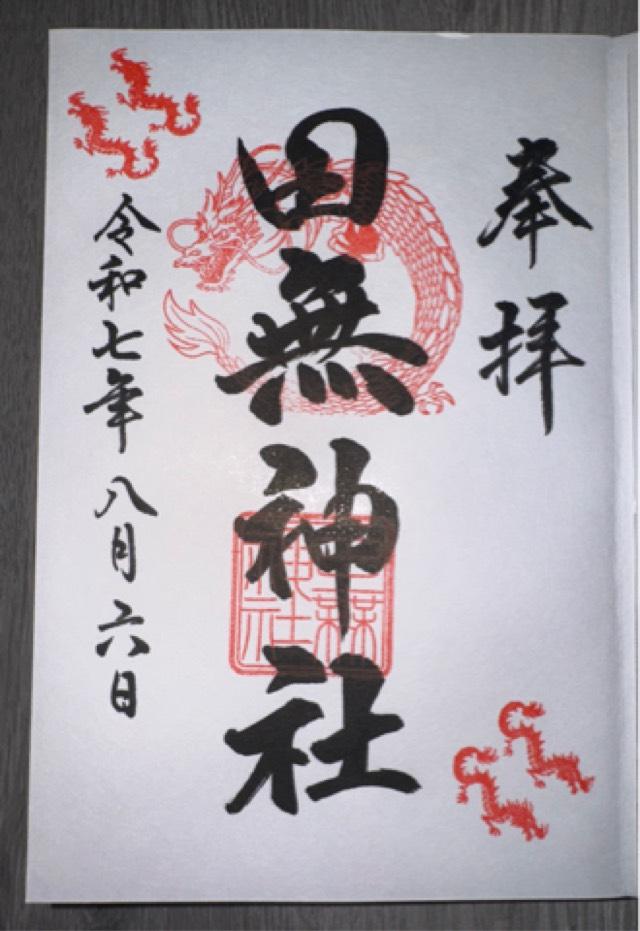 奉拝
田無神社
田無神社
令和七年八月六日